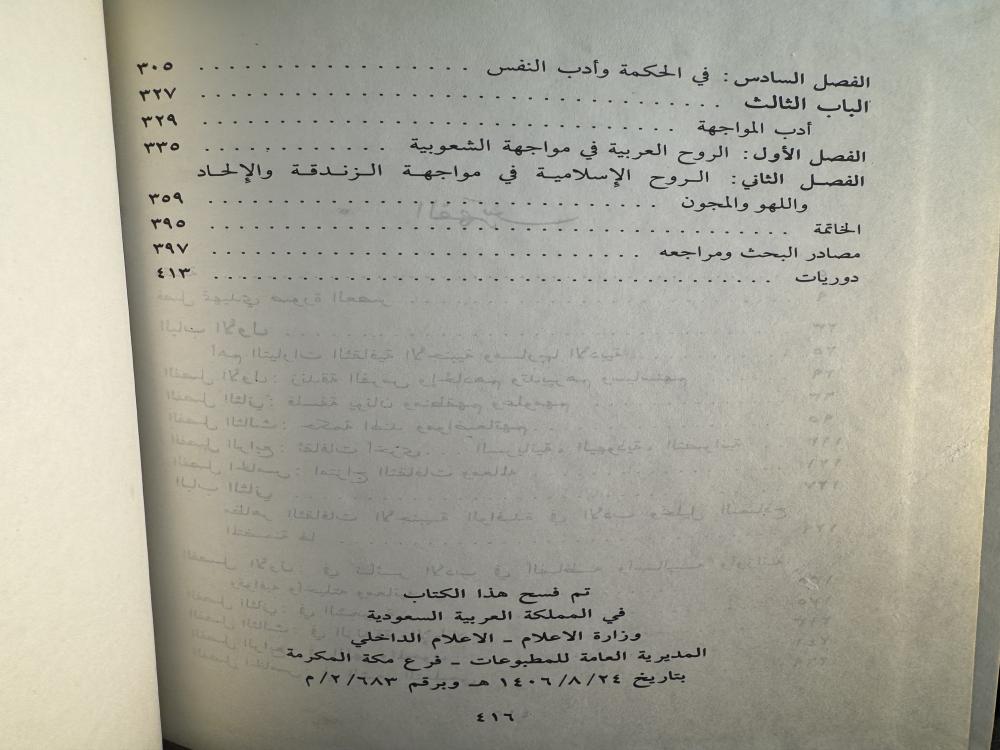 الفصل السادس: في الحكمة وأدب النفس . . . . . . . . . . . . . . . . . ٣٠٥
الباب الثالث . . . . . . . . . . . . . . . . . . . . . . . . . . . . . . . . ٣٢٧
أدب المواجهة . . . . . . . . . . . . . . . . . . . . . . . . . . . . . ٣٢٩
الفصل الأول: الروح العربية في مواجهة الشعوبية . . . . . . . . . . . . ٣٣٥
الفصل الثاني: الروح الإسلامية في مواجهة الزندقة والإلحاد
واللهو والمجون . . . . . . . . . . . . . . . . . . . . . . . . . . . . ٣٥٩
الخاتمة . . . . . . . . . . . . . . . . . . . . . . . . . . . . . . . . . . . ٣٩٥
مصادر البحث ومراجعه . . . . . . . . . . . . . . . . . . . . . . . . . . ٣٩٧
دوريات . . . . . . . . . . . . . . . . . . . . . . . . . . . . . . . . . . ٤١٣
تم فسح هذا الكتاب
في المملكة العربية السعودية
وزارة الاعلام ــ الاعلام الداخلي
المديرية العامة للمطبوعات ــ فرع مكة المكرمة
بتاريخ ١٤٠٦/٨/٢٤ هـ وبرقم ٢/٦٨٣/م
٤١٦